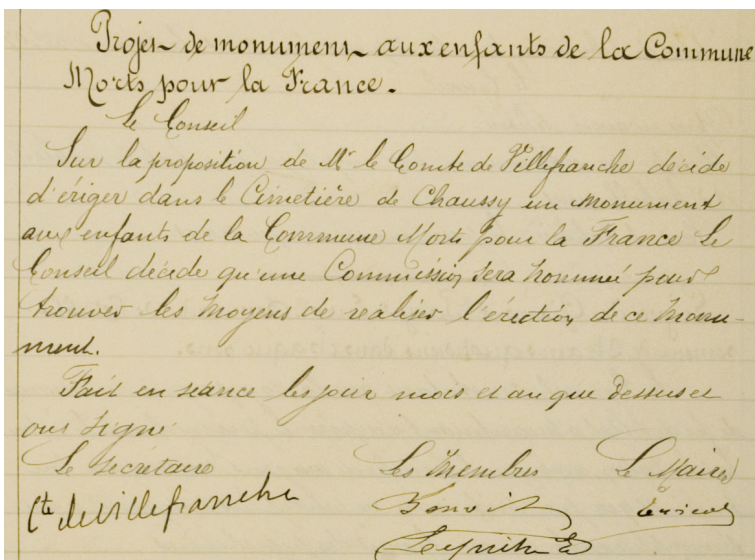 Projet de monument aux enfants de la Commune
Morts pour la France.
Le Conseil
Sur la proposition de Mr le Comte de Villefranche décide
d'ériger dans le Cimetière de Chaussy un Monument
aux enfants de la Commune Morts pour la France Le
Conseil décide qu'une Commission sera nommé pour
trouver les moyens de realiser l'érection de ce Monu-
ment.
Fait en séance les jour mois et an que dessus et
ont signé
Le Secrétaire Les Membres Le Maire
Cte de Villefranche Benoit